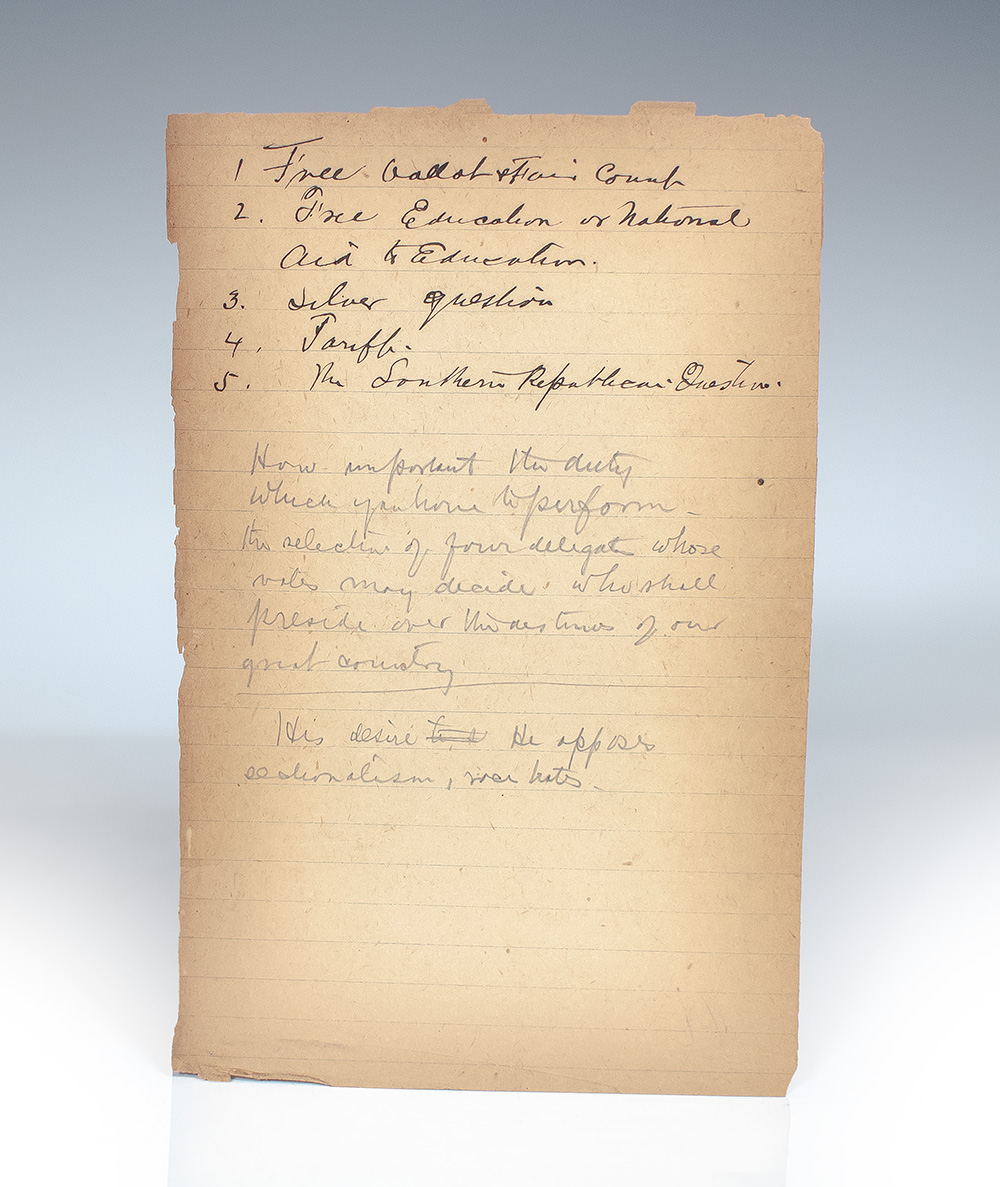 1 Free Ballot & Fair Count
2. Free Education or National
Aid to Education.
3. Silver question
4. Tariff.
5. The Southern Republican Question.
How important the duty
which you have to perform -
the selection of four delegates whose
votes may decide who shall
preside over the destinies of our
great country
His desire He opposes
sectionalism, race hate.